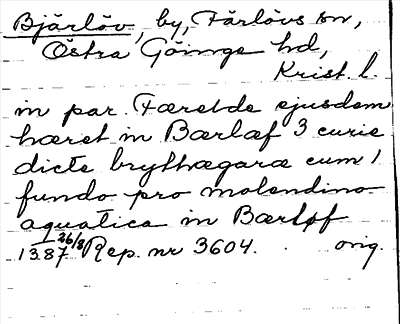 Bjärlöv, by, Färlövs sn,
Östra Göinge hd,
Krist. l.
in par. Færelde ejusdem
hæret in Bærlæf 3 curie
dicte brythægaræ cum 1
fundo pro molendino
aquatica in Bærløf
1387 26/8 Rep. nr 3604. orig.